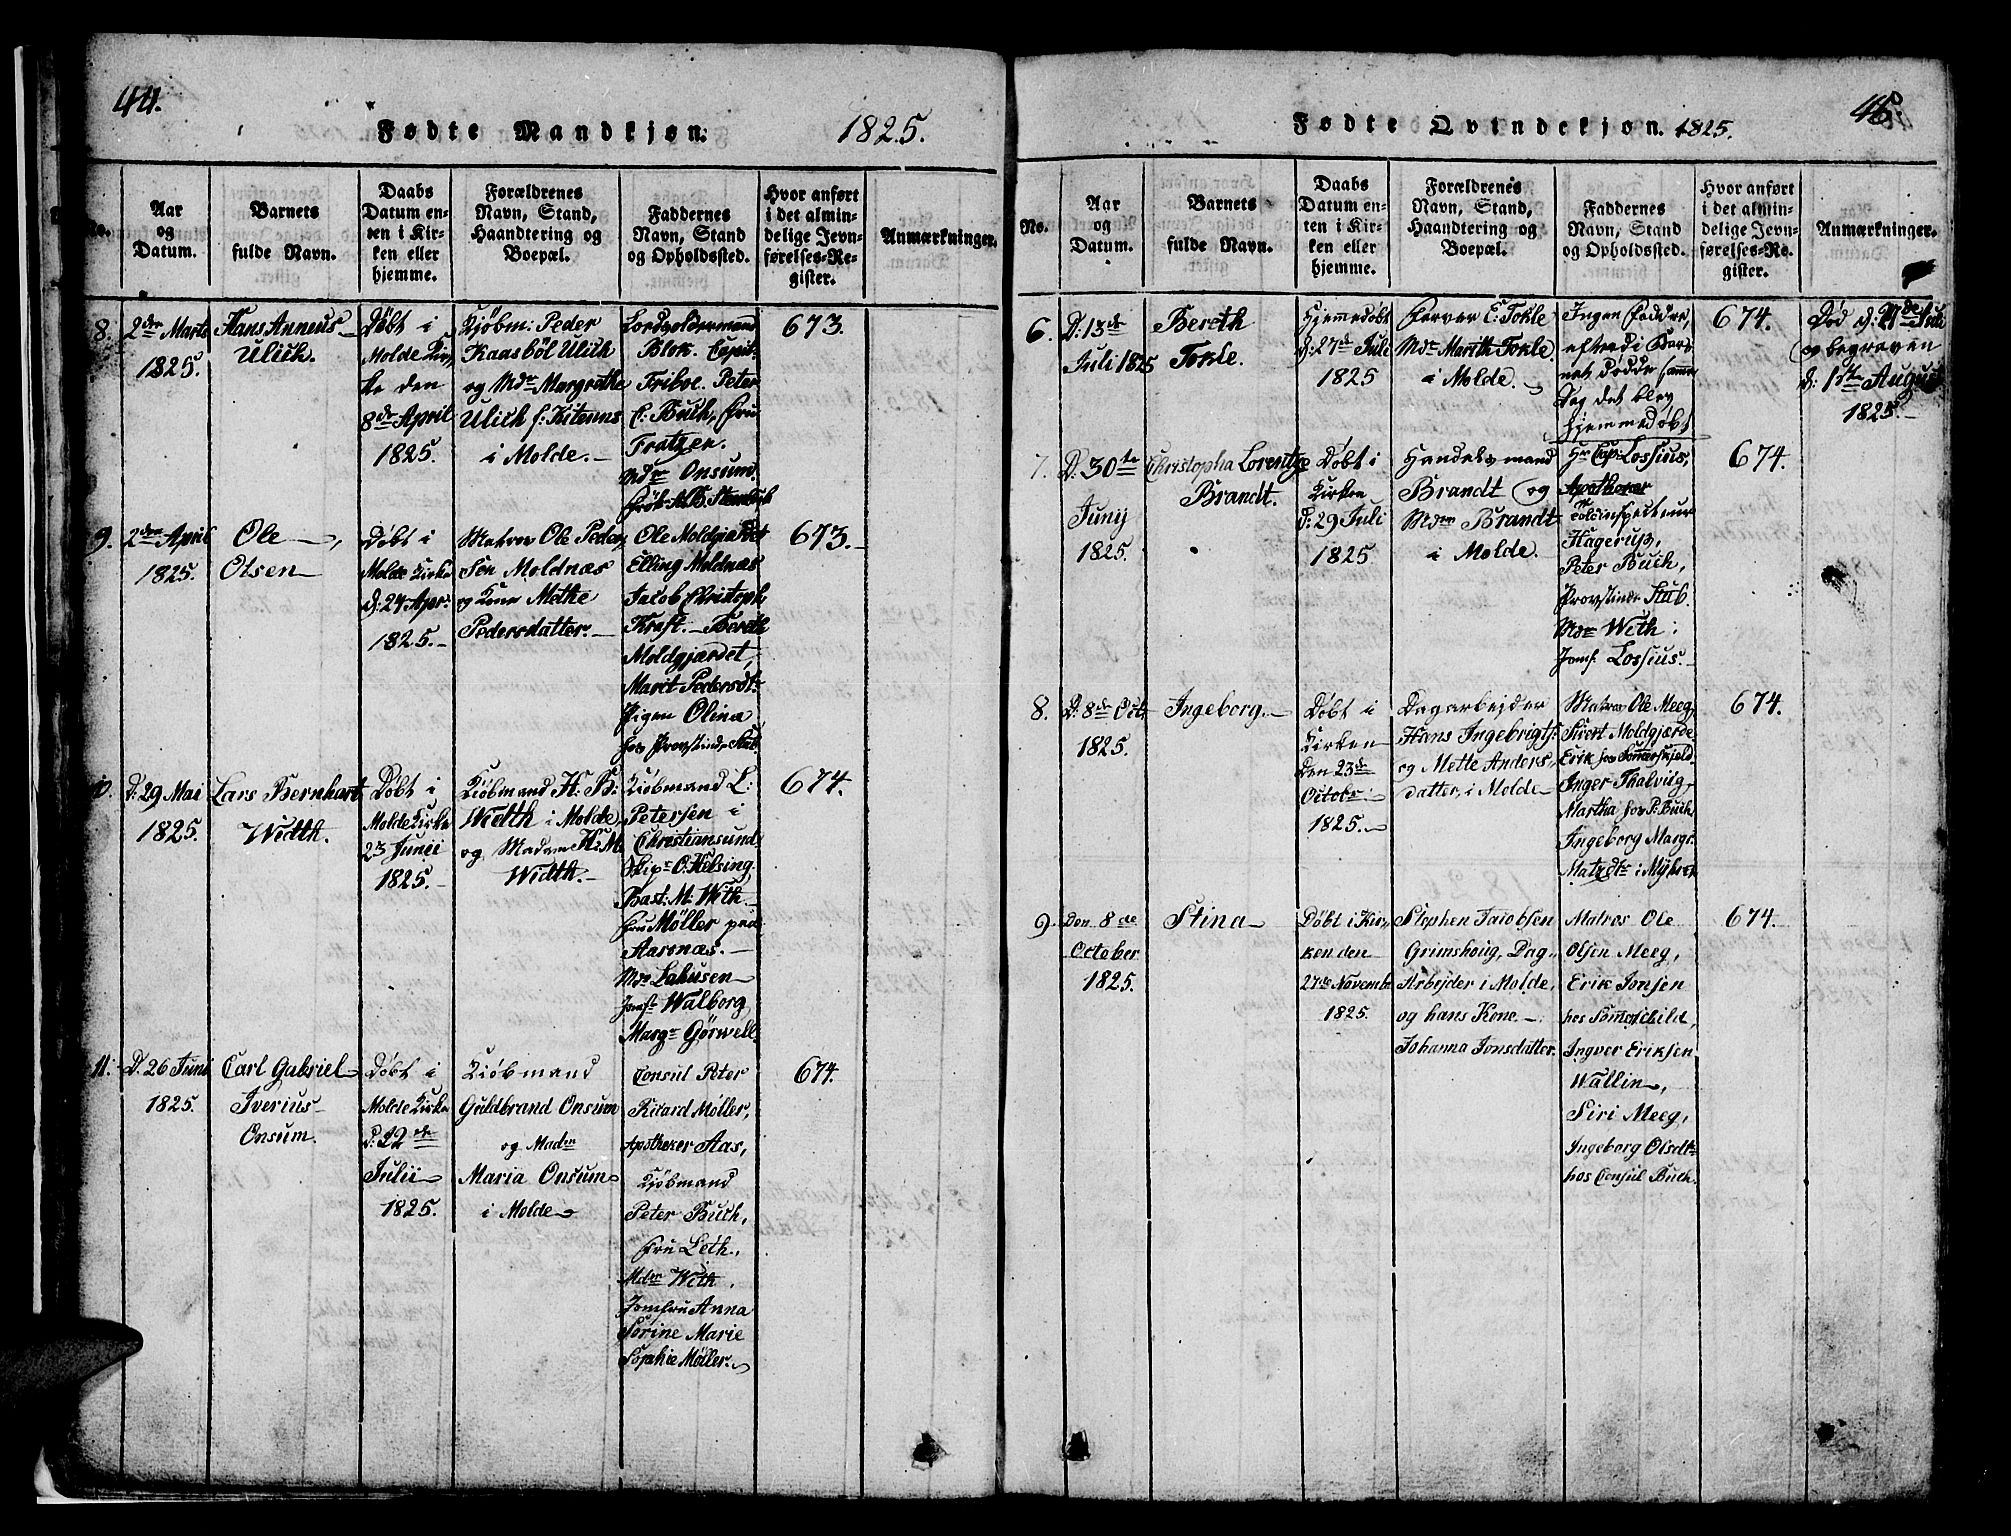 44.
Fødte Mandkjøn. 1825.
No.
Aar
og
Datum.
Barnets
fulde Navn.
Daabs
Datum en-
ten i Kir-
ken eller
hjemme.
Forældrenes
Navn, Stand,
Haandtering og
Boepæl.
Faddernes
Navn, Stand
og Opholdssted.
Hvor anført
i det almin-
delige Jevn-
førelses-Re-
gister.
Anmærkninger.
8.
2den Marts
1825.
Hans Anneus
Ulich.
Døbt i
Molde Kir-
ke den
8de April
1825.
Kjöbm: Peder
Kaasböl Ulich
og Mdm Margrethe
Ulich f:
i Molde.
Blok. Capit.
Triboe. Peter
C: Buch, Fru
Mdm Onsum.
9.
2den April
1825.
Ole
Olsen
Døbt i
Molde Kirke
d: 24 Apr:
1825.
Matros Ole Peder
Sen Moldnæs
og Kone Methe
Pedersdatter.
Ole Moldgjærdet
Elling Moldnæs
Jacob Christoph
Kraft. Bereth
Moldgjærdet,
Marit Pedersdtr
Pigen Olina
hos Provstinde Stub
673.
673.
10.
D: 29 Mai
1825.
Lars Bernhart
Width.
Døbt i
Molde Kirke
23 Junii
1825.
Kiöbmand H: B:
Width i Molde,
og Madm H: M:
Width.
Kiöbmand L:
Petersen i
Christiansund,
Skipr O: Helsing,
Bast: M: With
Fru Møller paa
Aarønæs.
Mdm Lahusen
Jomfr Walborg
Margr Görwell
674.
11.
D: 26 Juni
1825.
Carl Gabriel
Iverius
Onsum.
Døbt i
Molde Kirke
D: 22de
Julii
1825.
Kiöbmand
Guldbrand Onsum
og Madm
Maria Onsum
i Molde
Consul Peter
Ricard Møller,
Apotheker Aas,
Kjöbmand
Peter Buch,
Fru Leth,
Mdm With,
Jomfru Anna
Sørine Marie
Sophie Møller.
674.
45.
Fødte Qvindekjøn. 1825.
No.
Aar
og
Datum.
Barnets
fulde Navn.
Daabs
Datum en-
ten i Kir-
ken eller
hjemme.
Forældrenes
Navn, Stand,
Haandtering og
Boepæl.
Faddernes
Navn, Stand
og Opholdssted.
Hvor anført
i det almin-
delige Jevn-
førelses-Re-
gister.
Anmærkninger.
6.
D: 13de
Juli 1825
Bereth
Tokle.
Hjemmedøbt
d: 27de Juli
1825
Farver C: Tokle
Mdm Marith Tokle
i Molde.
Ingen Faddre,
efterdi Bar-
net døde samme
Dag det blev
hjemmedøbt
674.
Død d: 27de Juli
og begraven
d: 1ste August
1825.
7.
D: 30te
Junij
1825.
Christopha Lorentze
Brandt.
Døbt i
Kirken
d: 29 Juli
1825
Handelsmand
Brandt og
Mdm Brandt
i Molde.
Hr Cap: Lossius,
Apotheker
Toldinspecteur
Hagerup,
Peter Buch,
Provstinde Stub.
Mdm With:
Jomf. Lossius.
674.
8.
D: 8de Octr
1825.
Ingeborg.
Døbt i
Kirken
Den 23de
Octobr
1825.
Dagarbejder
Hans Ingebrigts:
og Mette Anders
datter, i Molde
Matros Ole Meeg,
Sivert Moldgjærde
Erik hos Sommerskjeld
Inger Thalvilg,
Martha hos P: Buch
Ingeborg Margr.
Matzdtr i Myhret
674.
9.
Den 8de
October
1825.
Stina
Døbt i Kir-
ken den
27de Novembr
1825.
Stephen Jacobsen
Grimshoug, Dag-
Arbejder i Molde,
og hans Kone
Johanna Jonsdatter.
Matros Ole
Olsen Meeg,
Erik Jonsen
hos Somerschild,
Ingver Eriksen
Wallin,
Siri Meeg,
Ingeborg Olsdtr
hos Consul Buch.
674.